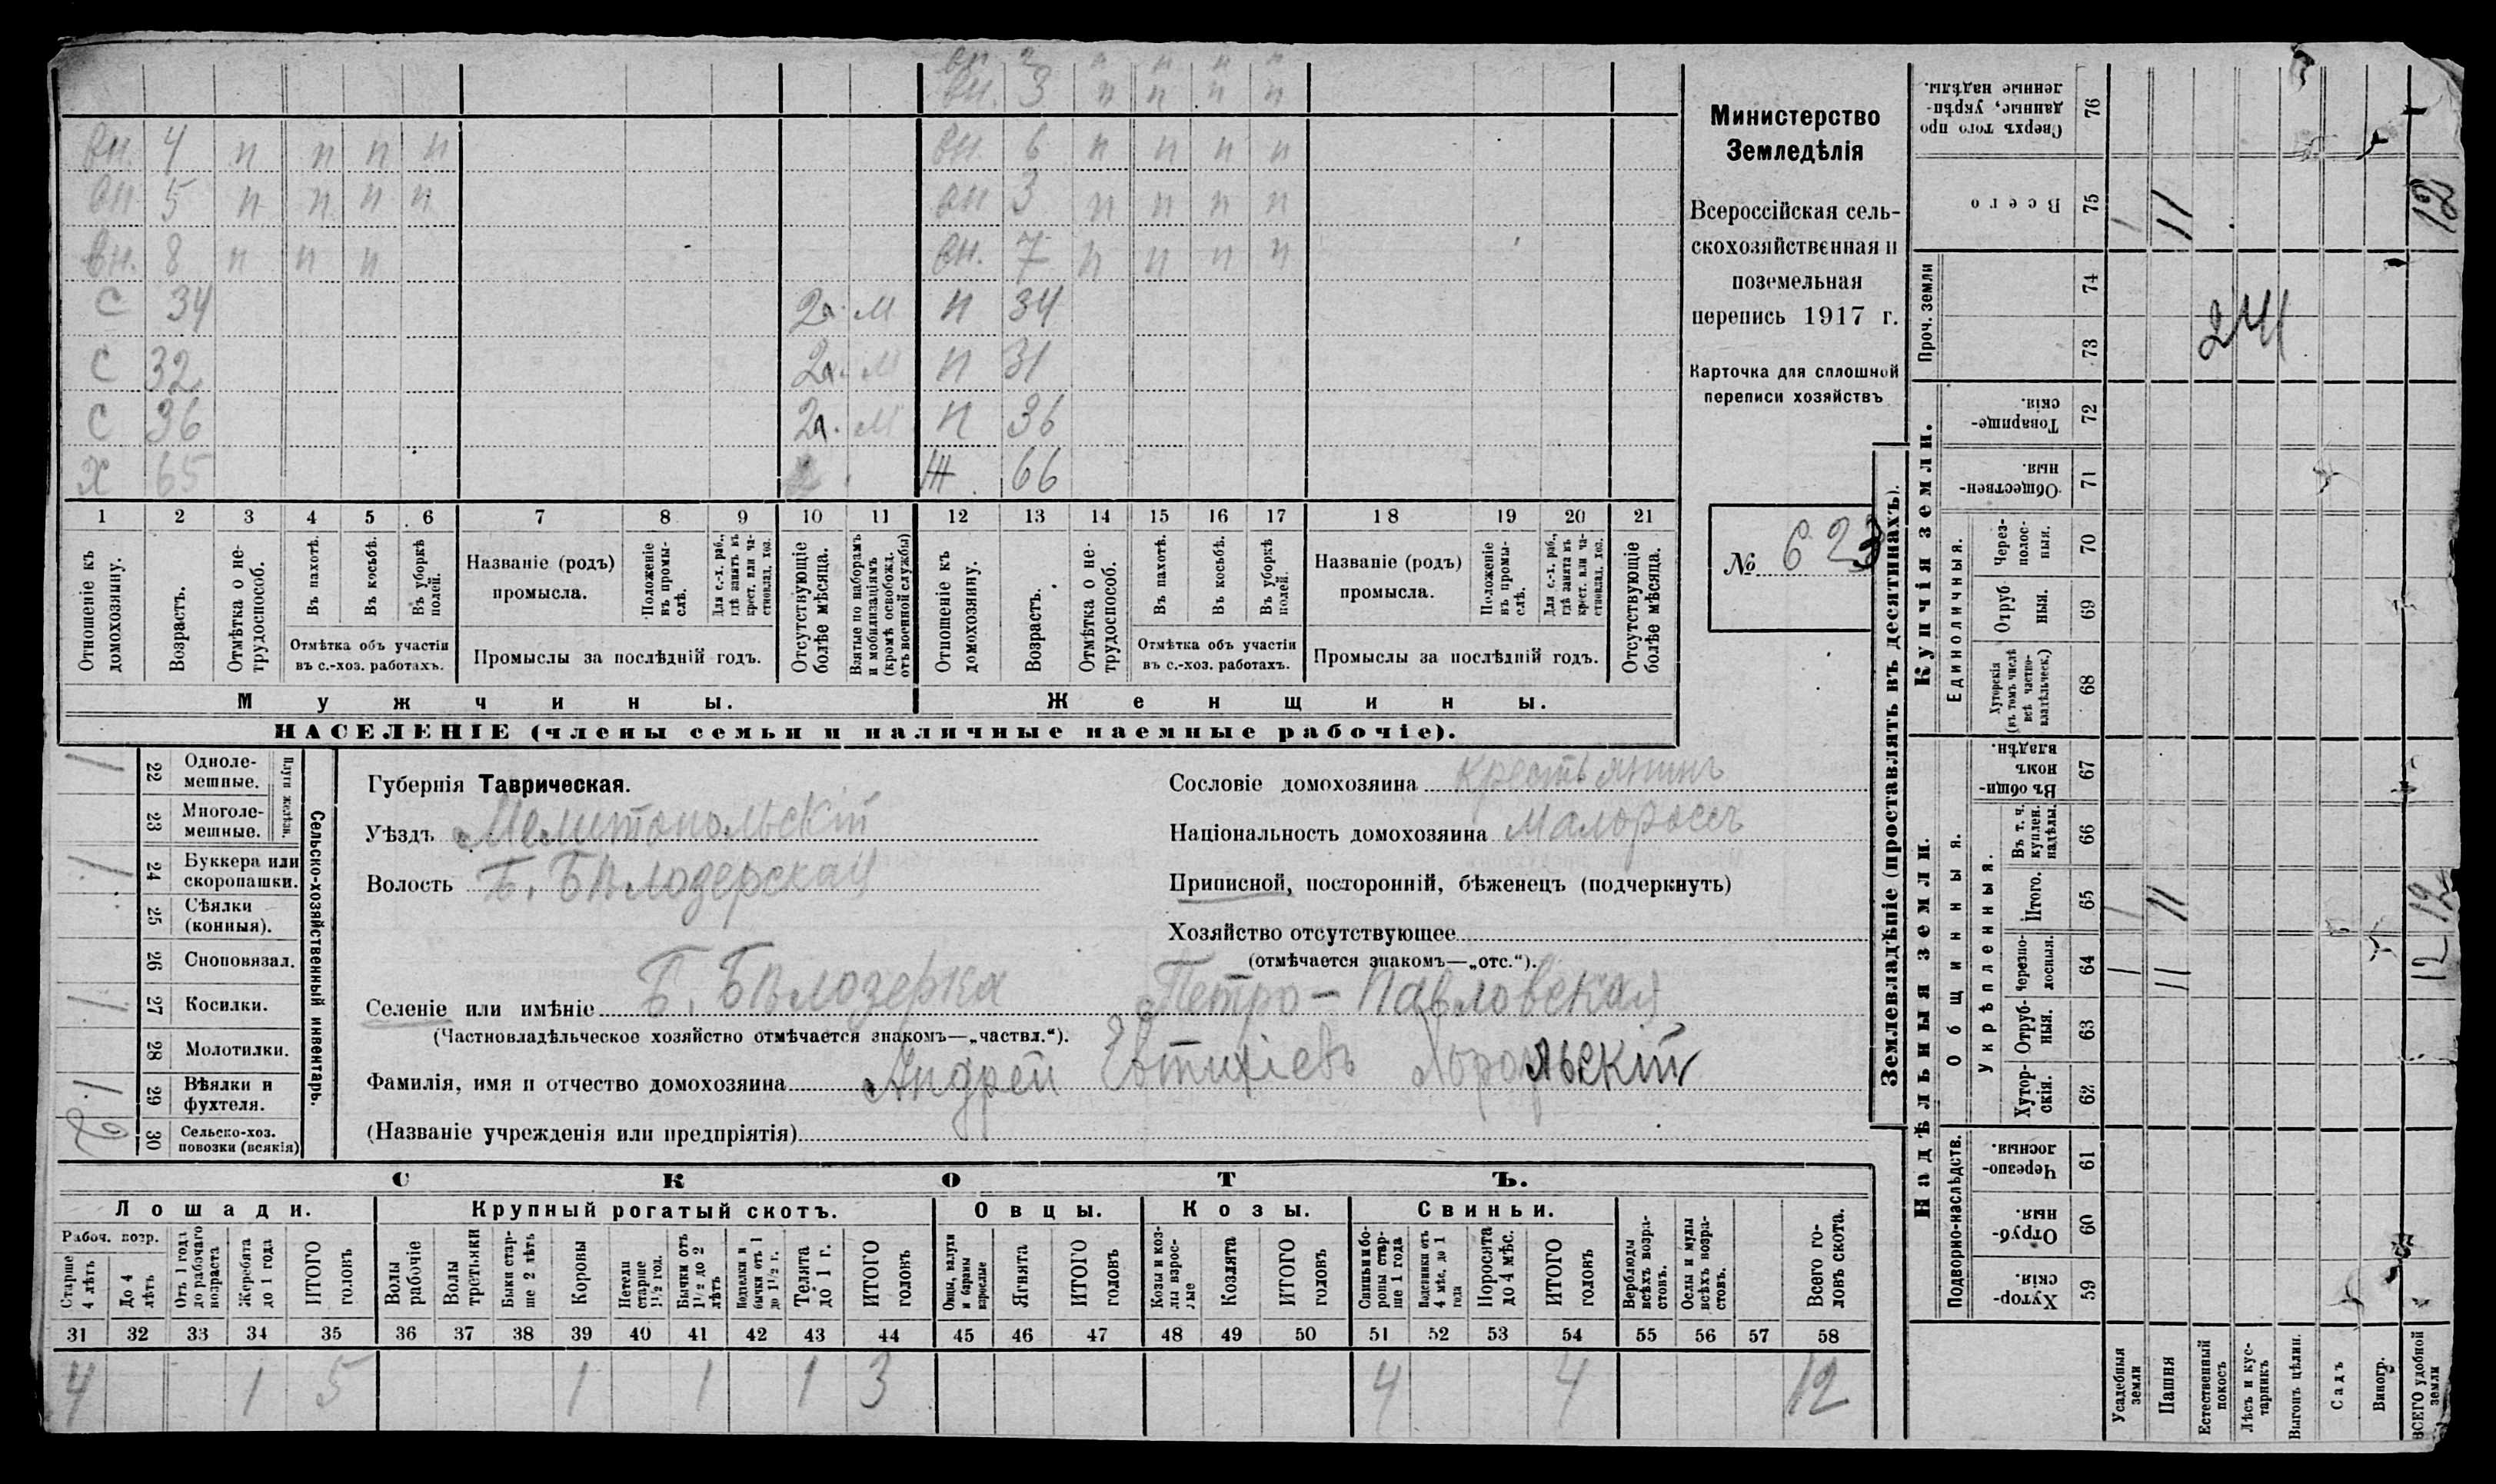 вн. 2 п п п п
вн. 3 п п п п
вн. 4 п п п п вн. 6 п п п п
вн 5 п п п п вн 3 п п п п
вн. 8 п п п вн. 7 п п п п
С 34 2 м п 34
С 32 2 м п 31
С 36 2 м п 36
Х 65 Ж. 66
1 2 3 4 5 6 7 8 9 10 11 12 13 14 15 16 17 18 19 20 21
Отношеніе къ домохозяину.
Возрастъ.
Отмѣтка о не-трудоспособ.
Въ пахотѣ.
Въ косьбѣ.
Въ уборкѣ полей.
Отмѣтка объ участіи
въ с.-хоз. работахъ.
Названіе (родъ)
промысла.
Положеніе въ промы-слѣ.
Для с.-х. раб., гдѣ занятъ въ крест. или ча-стновлад. хоз.
Промыслы за послѣдній годъ.
Отсутствующіе болѣе мѣсяца.
Взятые по наборамъ и мобилизаціямъ (кромѣ освобожд. отъ военной службы)
Отношеніе къ домохозяину.
Возрастъ.
Отмѣтка о не-трудоспособ.
Въ пахотѣ.
Въ косьбѣ.
Въ уборкѣ полей.
Отмѣтка объ участіи
въ с.-хоз. работахъ.
Названіе (родъ)
промысла.
Положеніе въ промы-слѣ.
Для с.-х. раб., гдѣ занята въ крест. или ча-стновлад. хоз.
Промыслы за послѣдній годъ.
Отсутствующіе болѣе мѣсяца.
Мужчины. Женщины.
НАСЕЛЕНІЕ (члены семьи и наличные наемные рабочіе).
Министерство
Земледѣлія
Всероссійская сель-
скохозяйственная и
поземельная
перепись 1917 г.
Карточка для сплошной
переписи хозяйствъ
№ 623
Сельско-хозяйственный инвентарь.
Плуги желѣзн.
1 22 Одноле-
мешные.
23 Многоле-
мешные.
1 24 Буккера или
скоропашки.
25 Сѣялки
(конныя).
26 Сноповязал.
1 27 Косилки.
28 Молотилки.
1 29 Вѣялки и
фухтеля.
2 30 Сельско-хоз.
повозки (всякія)
Губернія Таврическая.
Уѣздъ Мелитопольскій
Волость Б. Бѣлозерская
Селеніе или имѣніе Б. Бѣлозерка Петро-Павловская
(Частновладѣльческое хозяйство отмѣчается знакомъ—„частвл.“).
Фамилія, имя и отчество домохозяина Андрей Евтихіевъ
(Названіе учрежденія или предпріятія)
Сословіе домохозяина крестьянинъ
Національность домохозяина малороссъ
Приписной, посторонній, бѣженецъ (подчеркнуть)
Хозяйство отсутствующее
(отмѣчается знакомъ—„отс.“).
СКОТЪ.
Лошади. Крупный рогатый скотъ. Овцы. Козы. Свиньи.
Рабоч. возр.
Старше 4 лѣтъ
До 4 лѣтъ
Отъ 1 года до рабочаго возраста
Жеребята до 1 года
ИТОГО головъ
Волы рабочіе
Волы третьяки
Быки стар-ше 2 лѣтъ
Коровы
Нетели старше 1½ год.
Бычки отъ 1½ до 2 лѣтъ
Подтелки и бычки отъ 1 до 1½ г.
Телята до 1 г.
ИТОГО головъ
Овцы, валухи и бараны взрослые
Ягнята
ИТОГО головъ
Козы и коз-лы взрос-лые
Козлята
ИТОГО головъ
Свиньи и бо-ровы стар-ше 1 года
Подсвинки отъ 4 мѣс. до 1 года
Поросята до 4 мѣс.
ИТОГО головъ
Верблюды всѣхъ возра-стовъ.
Ослы и мулы всѣхъ возра-стовъ.
Всего го-ловъ скота.
31 32 33 34 35 36 37 38 39 40 41 42 43 44 45 46 47 48 49 50 51 52 53 54 55 56 57 58
4 1 5 1 1 1 3 4 4 12
Землевладѣніе (проставлять въ десятинахъ).
Надѣльныя земли. Купчія земли. Проч. земли
Подворно-наслѣдств. Общинныя. Укрѣпленныя. Единоличныя.
59 Хутор-скія.
60 Отруб-ныя.
61 Черезпо-лосныя.
62 Хутор-скія.
63 Отруб-ныя.
64 Черезпо-лосныя. 1 11 12
65 Итого. 1 11 12
66 Въ т. ч. куплен. надѣлы.
67 Въ общи-номъ владѣн.
68 Хуторскія (въ томъ числѣ всѣ частно-владѣльческ.)
69 Отруб-ныя.
70 Через-полос-ныя.
71 Обществен-ныя.
72 Товарище-скія.
73
74
24
75 Всего 1 11 12
76 Сверхъ того про-данные, укрѣп-ленные надѣлы.
Усадебныя земли
Пашня
Естественный покосъ
Лѣсъ и кус-тарникъ
Выгонъ цѣлин.
Садъ
Виногр.
ВСЕГО удобной земли